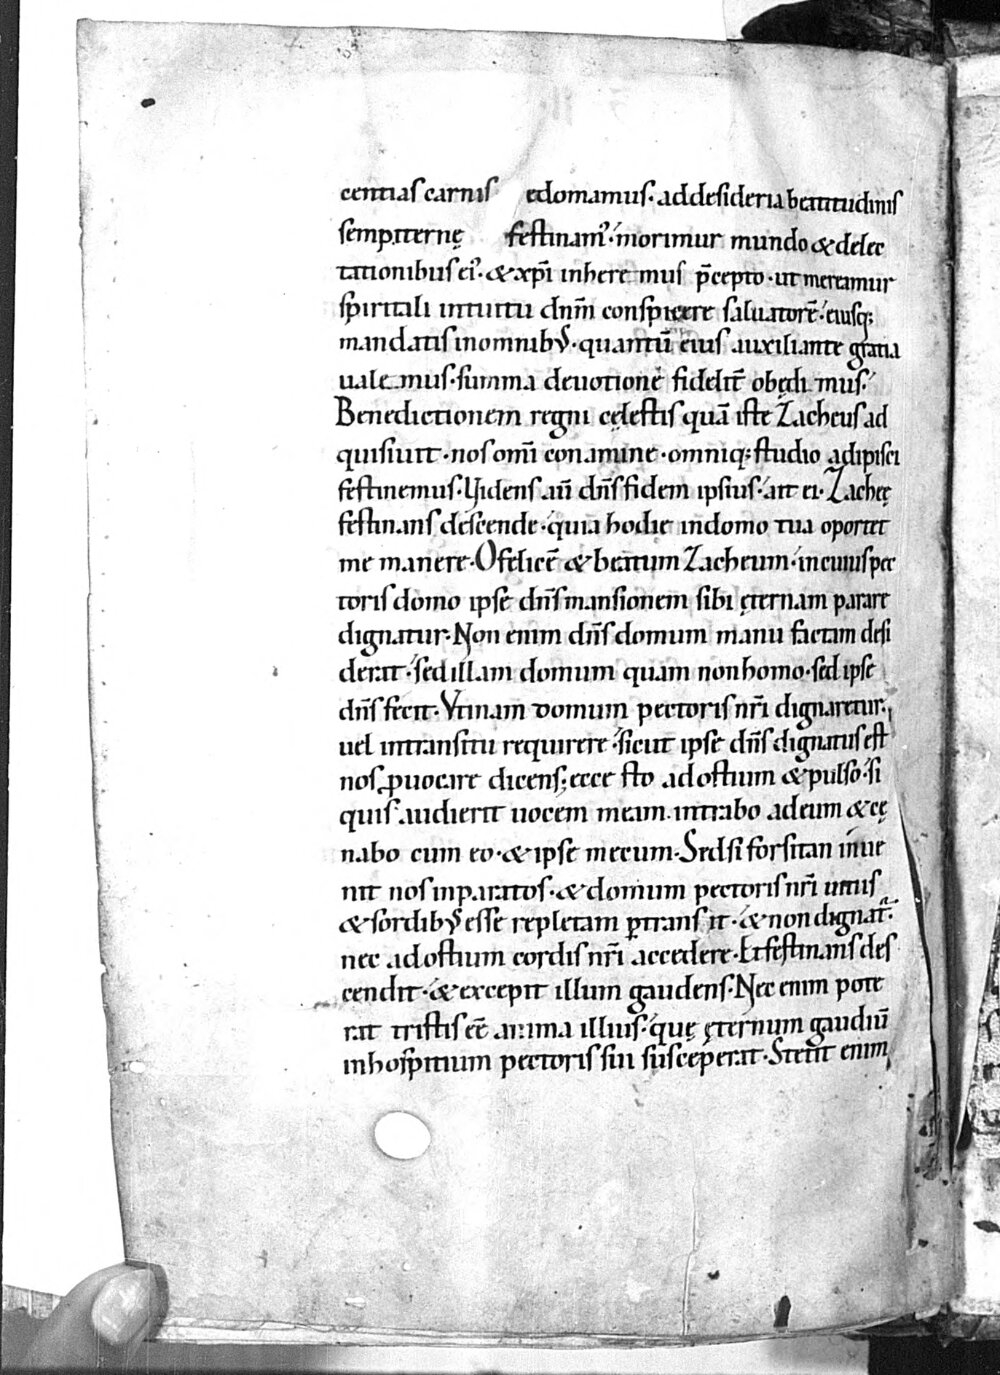 centias carnis edomamus· ad desideria beatitudinis
sempiternę festinamꝰ· morimur mundo & delec
tationibus eiꝰ· & xp̄i inheremus p̄cepto· ut mereamur
spiritali intuitu dnm̄ conspicere saluatorē· eiusq;
mandatis in omnibꝰ· quantū eius auxiliante gratia
ualemus· summa deuotione fidelit̄ obędimus·
Benedictionem regni cęlestis quā iste Zacheus ad
quisiuit· nos om̄i conamine· omniq; studio adipisci
festinemus· Uidens aū dn̄s fidem ipsius· ait ei· Zachęę
festinans descende· quia hodie in domo tua oportet
me manere· O felicē & beatum Zacheum· in cuius pec
toris domo ipse dn̄s mansionem sibi ęternam parare
dignatur· Non enim dn̄s domum manu factam desi
derat· sed illam domum quam non homo· sed ipse
dn̄s fecit· Vtinam domum pectoris nr̄i dignaretur·
uel in transitu requirere· sicut ipse dn̄s dignatus est
nos ꝓuocare dicens; ecce sto ad ostium & pulso· si
quis audierit uocem meam· intrabo ad eum & cę
nabo cum eo· & ipse mecum· Sed si forsitan inue
nit nos inparatos· & domum pectoris nr̄i uitiis
& sordibꝰ esse repletam ꝑtransiit· & non dignat̄·
nec ad ostium cordis nr̄i accedere· Et festinans des
cendit· & excepit illum gaudens· Nec enim pote
rat tristis eē anima illius· quę ęternum gaudiū
in hospitium pectoris sui susceperat· Stetit enim